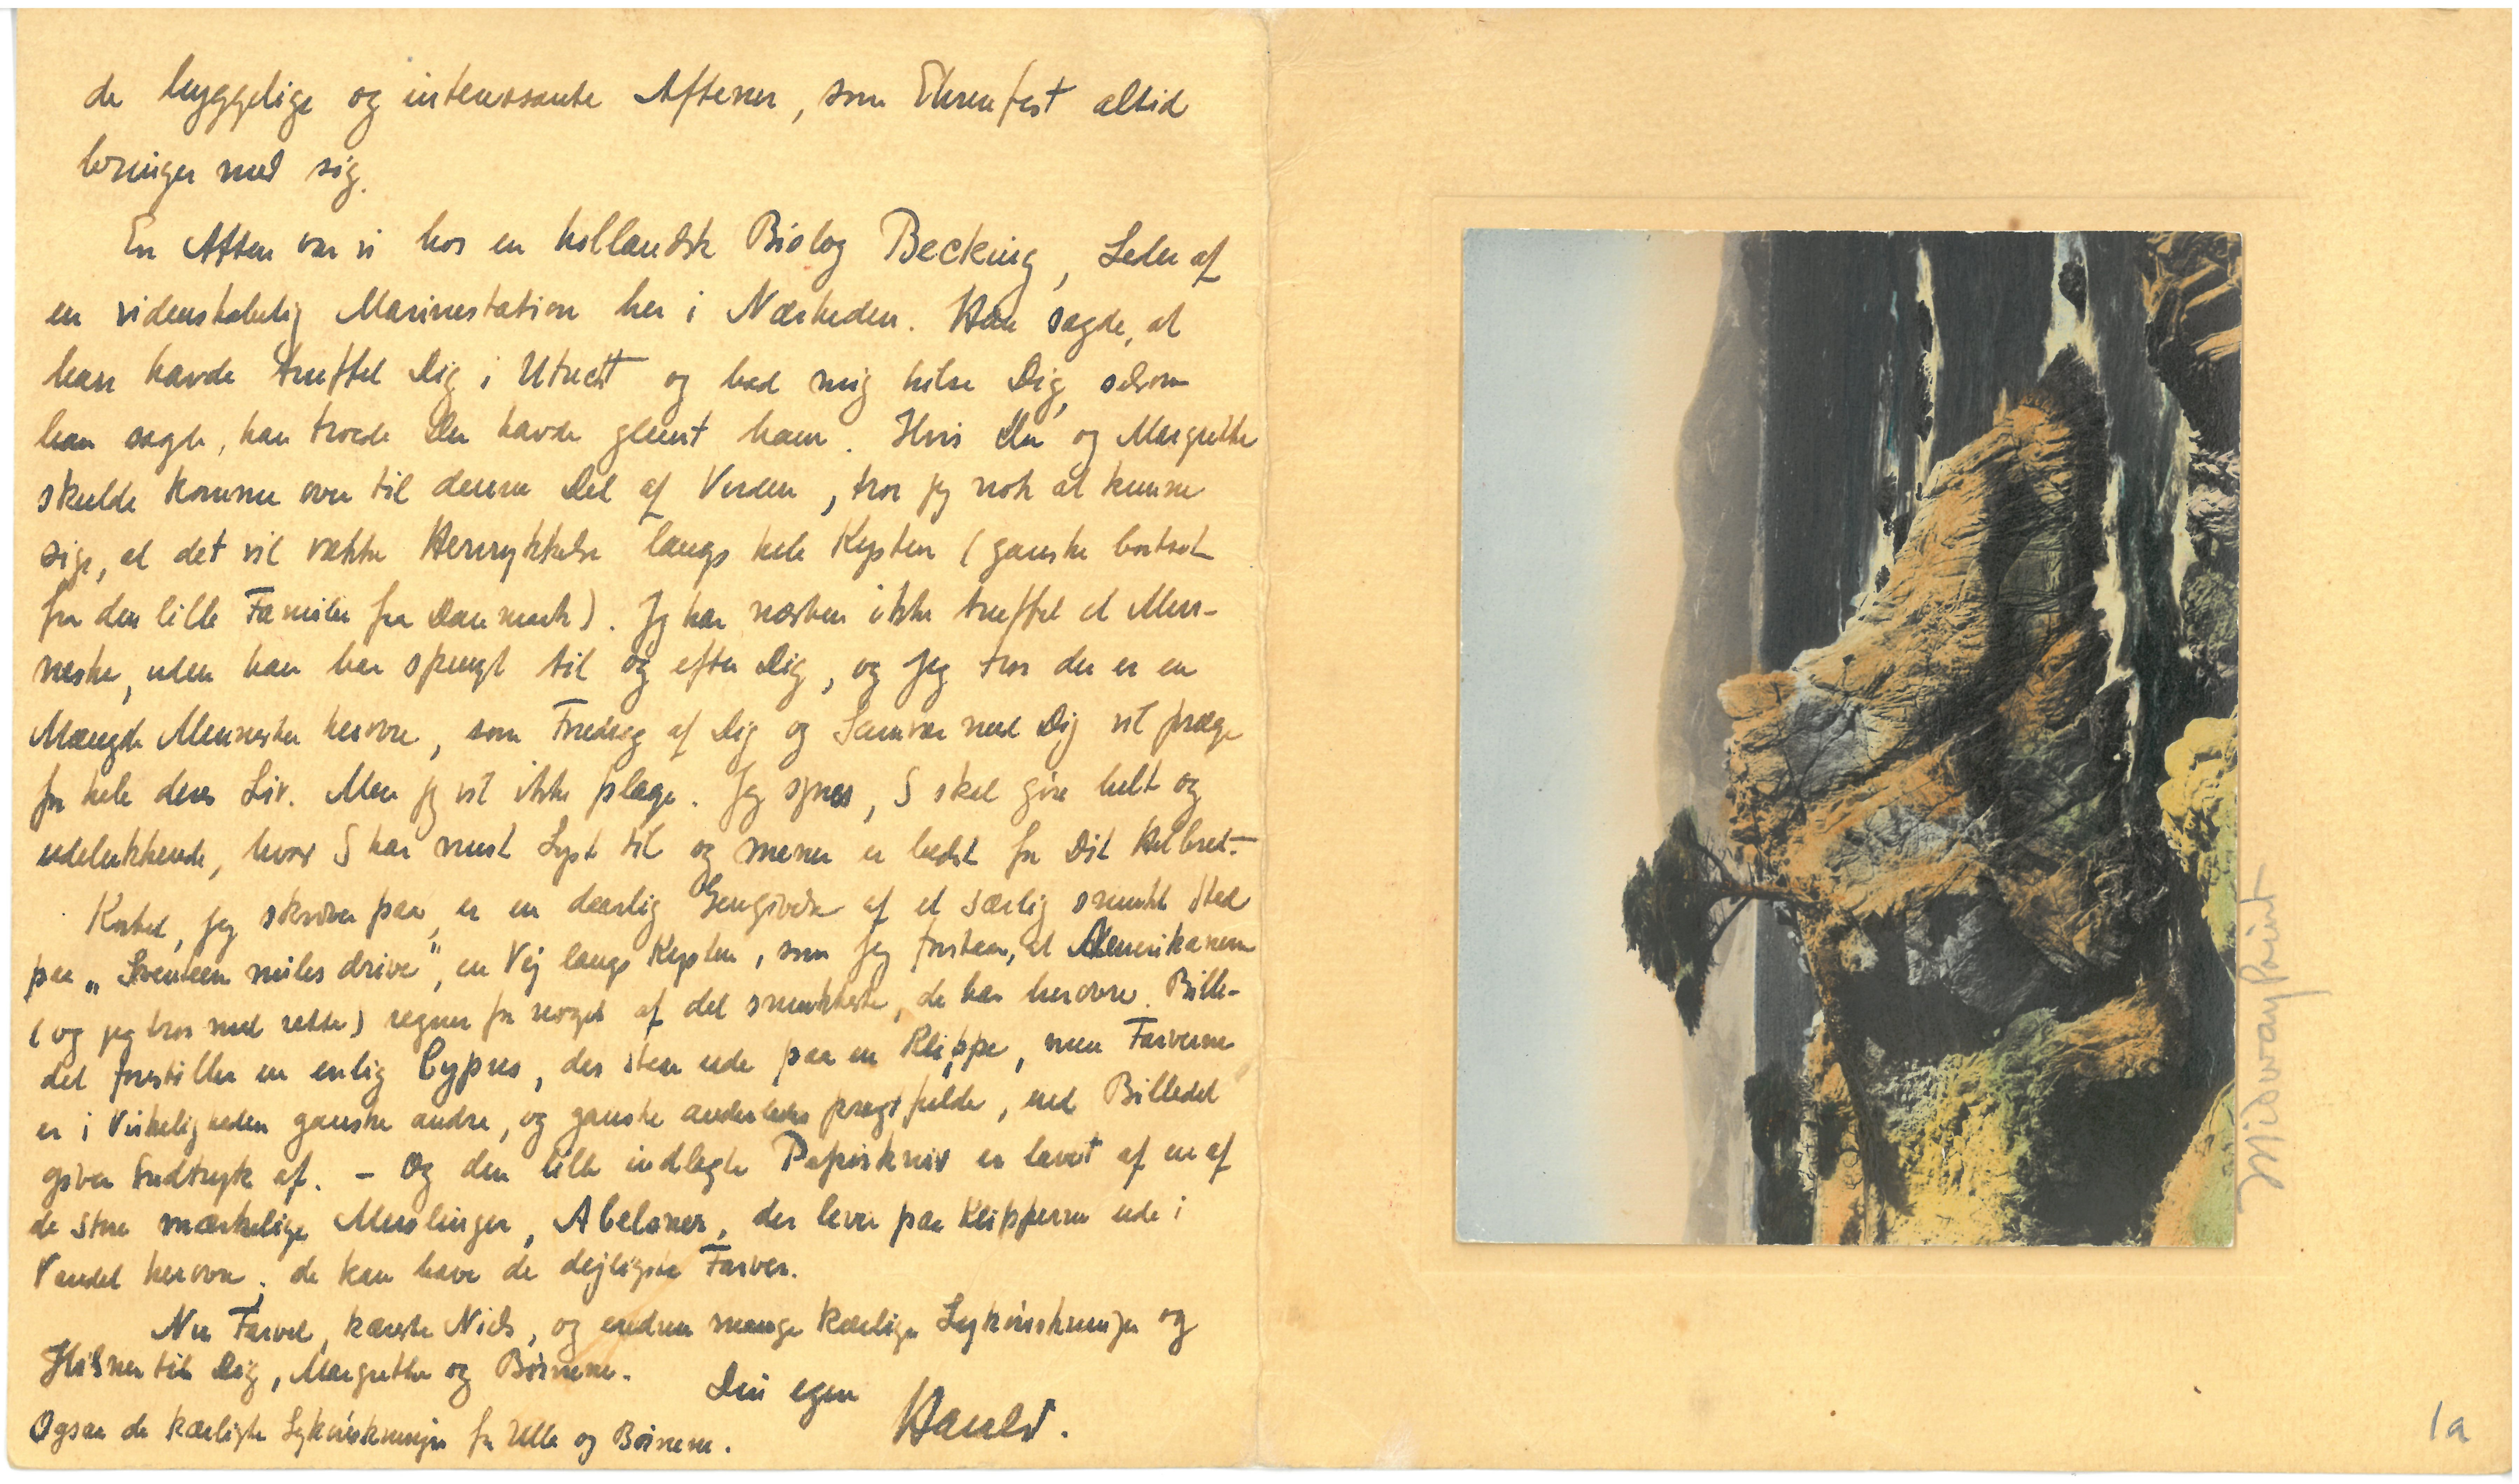 de hyggelige og interessante Aftener, som Ehrenfest altid
bringer med sig.
En Aften var vi hos en hollandsk Biolog Becking, Leder af
en videnskabelig Marinestation her i Nærheden. Han sagde, at
han havde truffet Dig i Utrecht og bad mig hilse Dig, selvom
han sagde, han troede Du havde glemt ham. Hvis Du og Margrethe
skulde komme over til denne Del af Verden, tror jeg nok at kunne
sige, at det vil vække Henrykkelse langs hele Kysten (ganske bortset
fra den lille Familie fra Danmark). Jeg har næsten ikke truffet et Men-
neske, uden han har spurgt til og efter Dig, og jeg tror der er en
Mængde Mennesker herovre, som Foredrag af Dig og Samvær med Dig vil præge
for hele deres Liv. Men jeg vil ikke plage. Jeg synes, I skal gøre helt og
udelukkende, hvad I har mest Lyst til og mener er bedst for Dit Helbred.-
Kortet, jeg skriver paa, er en daarlig Gengivelse af et særlig smukt Sted
paa „Seventeen miles drive", en Vej langs Kysten, som jeg forstaar, at Amerikanerne
(og jeg tror med rette) regner for noget af det smukkeste, de har herovre. Bille-
det forestiller en enlig Cypres, der staar ude paa en Klippe, men Farverne
er i Virkeligheden ganske andre, og ganske anderledes pragtfulde, end Billedet
giver Indtryk af. - Og den lille indlagte Papirkniv er lavet af en af
de store mærkelige Muslinger, Abeloner, der lever paa Klipperne ude i
Vandet herovre; de kan have de dejligste Farver.
Nu Farvel, kæreste Niels, og endnu mange kærlige Lykønskninger og
Hilsner til Dig, Margrethe og Børnene.
Din egen Harald.
Ogsaa de kærligste Lykønskninger fra Ulla og Børnene.
Midway Point
1a